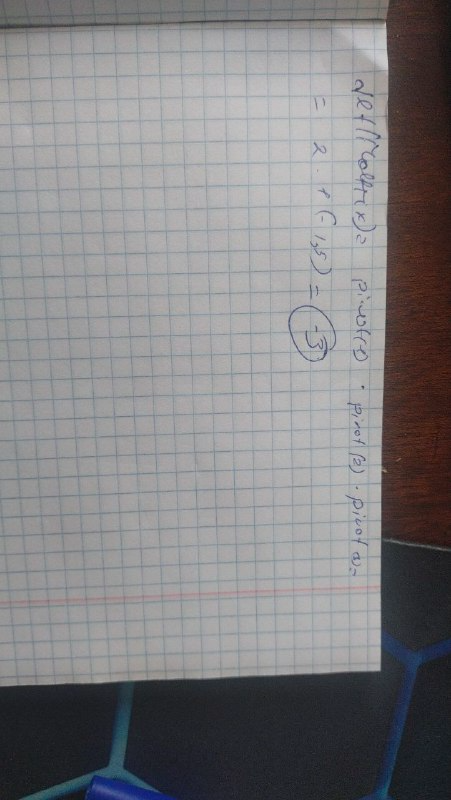 det(Matrix) = pivot(1) · pivot(2) · pivot(3) =
= 2 · 1 (-1,5) = -3